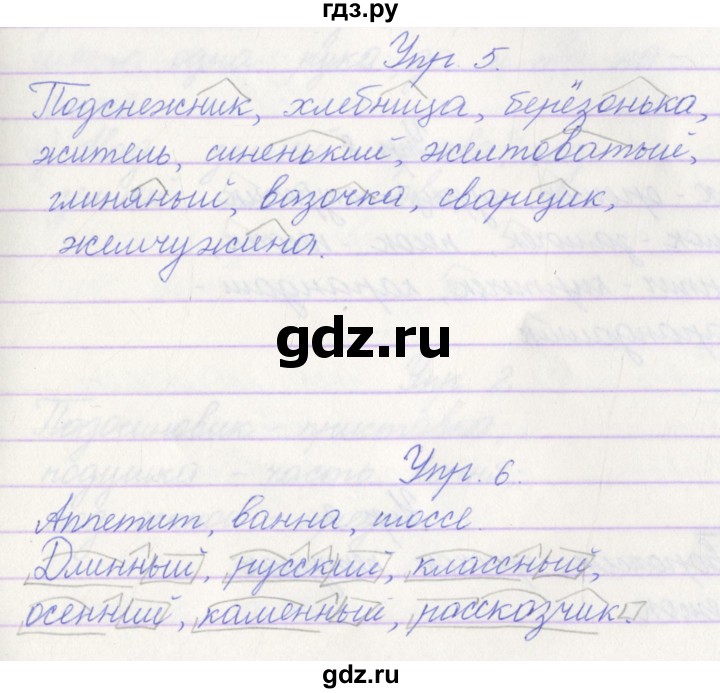 гдз.ру
Упр. 5.
Подснежник, хлебница, берёзонька,
житель, синенький, желтоватый,
глиняный, вазочка, сварщик,
жемчужина.
gdz.ru
Упр. 6.
Аппетит, ванна, шоссе.
Длинный, русский, классный,
осенний, каменный, рассказчик.
gdz.ru